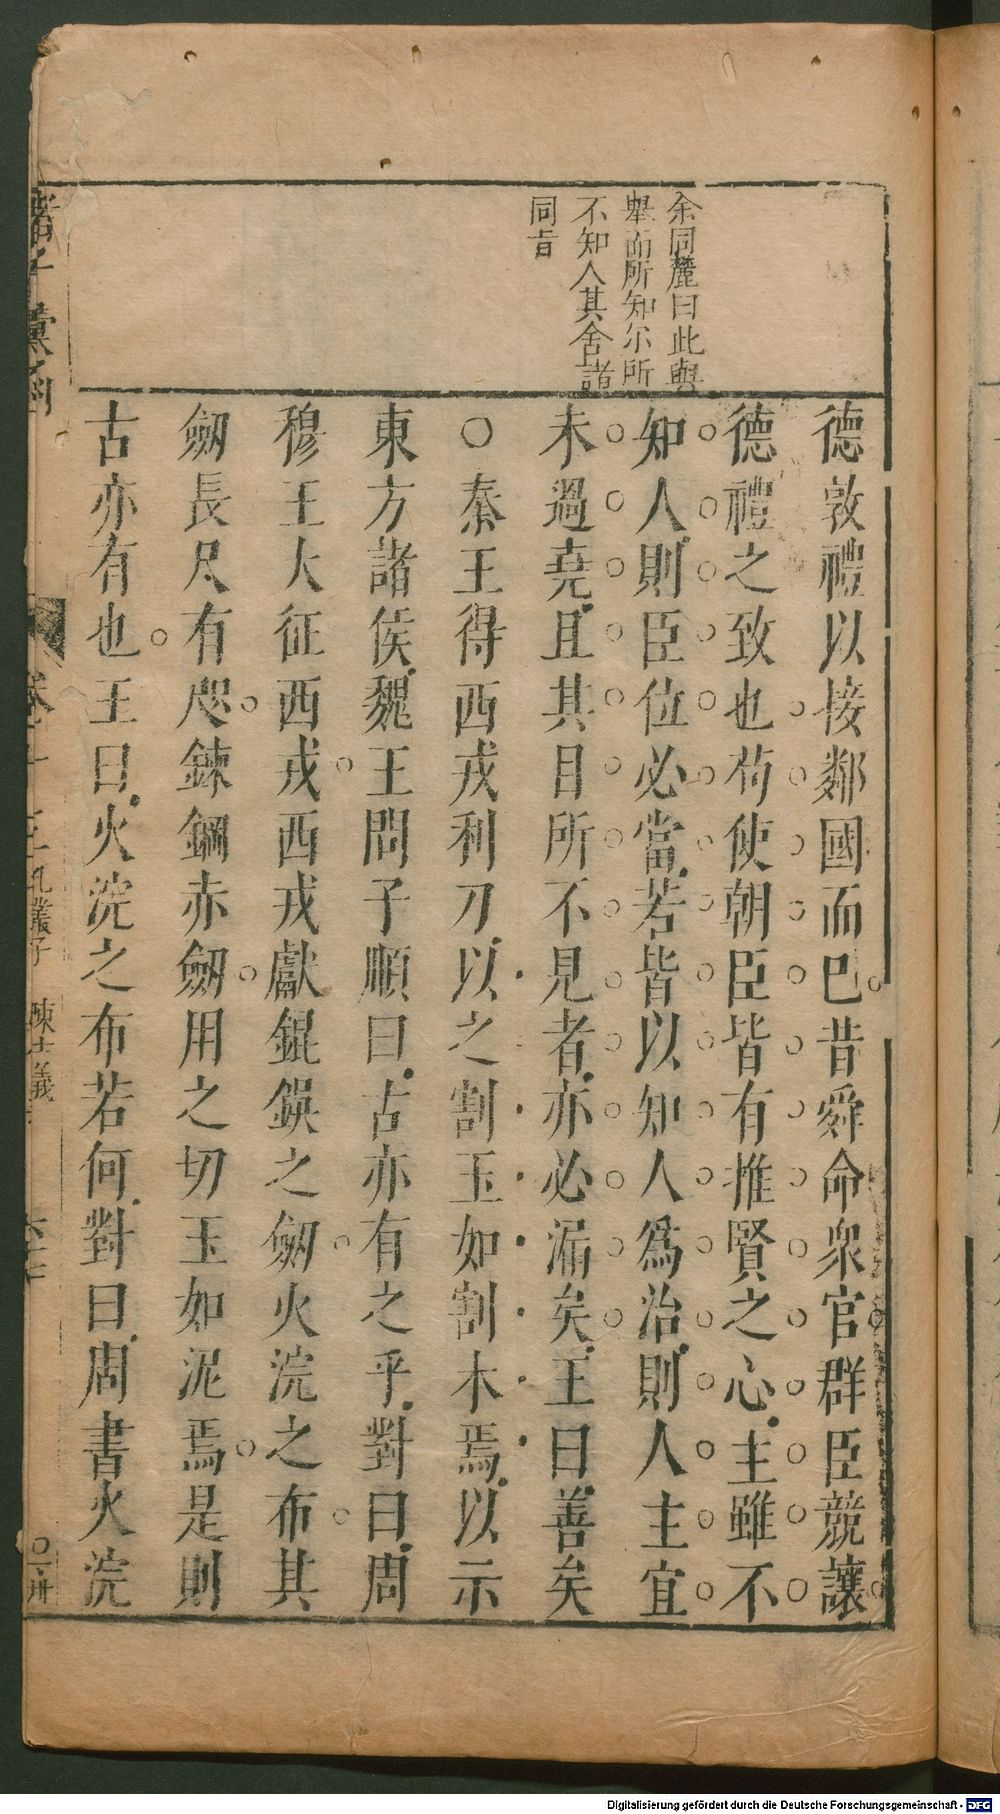 余同麓曰此與
舉而所知尓所
不知人其舍諸
同旨
德敦禮以接鄰國而巳昔舜命衆官群臣競讓
德禮之致也苟使朝臣皆有推賢之心主雖不
知人則臣位必當若皆以知人爲治則人主宜
未過堯且其目所不見者亦必漏矣王曰善矣
○秦王得西戎利刀以之割玉如割木焉以示
東方諸侯魏王問子順曰古亦有之乎對曰周
穆王大征西戎西戎獻錕鋘之劒火浣之布其
劒長尺有咫鍊鋼赤劒用之切玉如泥焉是則
古亦有也王曰火浣之布若何對曰周書火浣
諸子彙函
卷十
孔叢子
陳士義
Digitalisierung gefördert durch die Deutsche Forschungsgemeinschaft - DFG